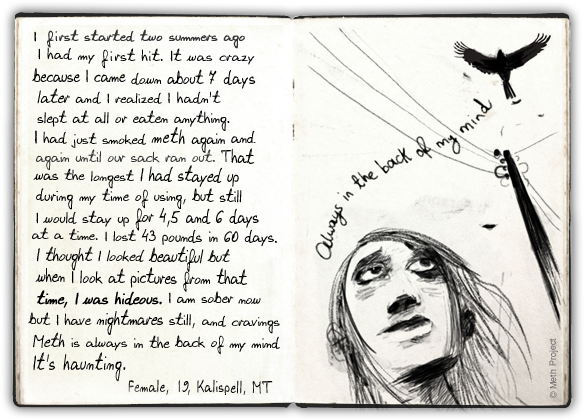 I first started two summers ago
I had my first hit. It was crazy
because I came down about 7 days
later and I realized I hadn't
slept at all or eaten anything.
I had just smoked meth again and
again until our sack ran out. That
was the longest I had stayed up
during my time of using, but still
I would stay up for 4,5 and 6 days
at a time. I lost 43 pounds in 60 days.
I thought I looked beautiful but
when I look at pictures from that
time, I was hideous. I am sober now
but I have nightmares still, and cravings
Meth is always in the back of my mind
It's haunting.
Female, 19, Kalispell, MT
Always in the back of my mind
© Meth Project